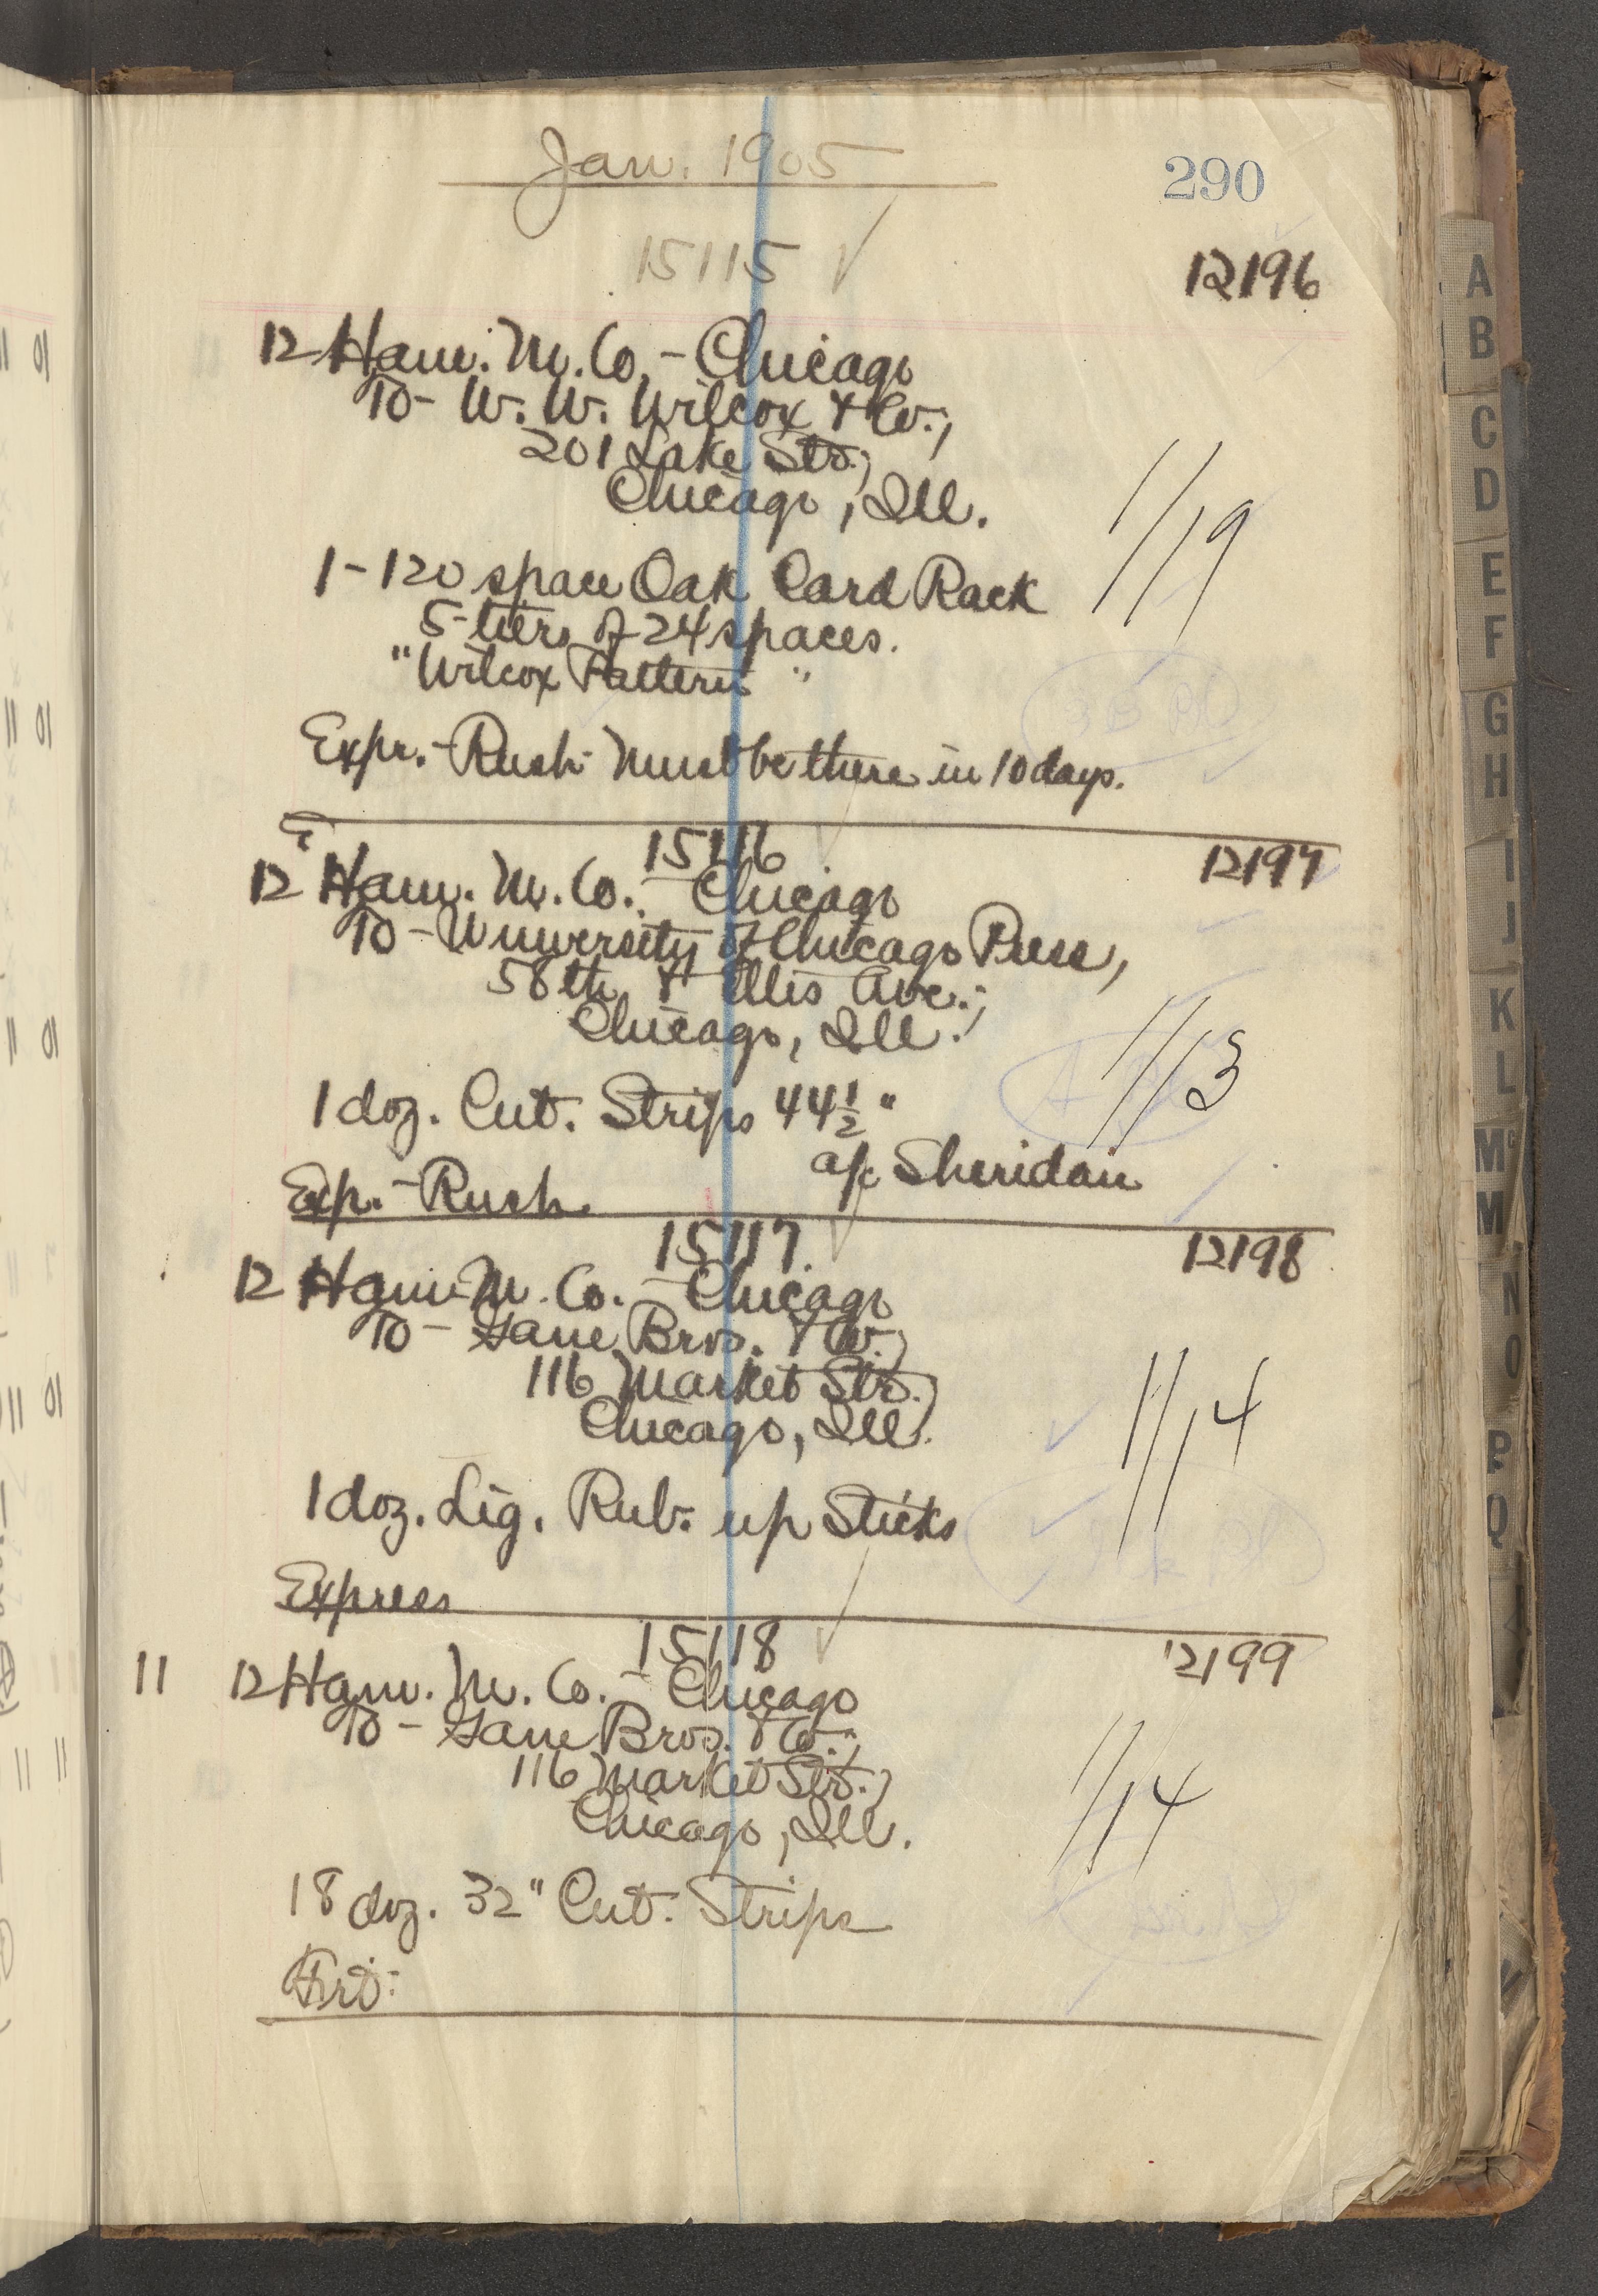 Jan. 1905
290
15115 ✓
12196
12 Ham. M. Co. - Chicago
To - W. W. Wilcox & Co.,
201 Lake Str.,
Chicago, Ill.
1/19
1-120 space Oak Card Rack
5-tiers of 24 spaces.
"Wilcox Pattern"
Expr. - Rush - Must be there in 10 days.
15116
12197
12 Ham. M. Co. - Chicago
To - University of Chicago Press,
58th & Ellis Ave.,
Chicago, Ill.
1/13
1 doz. Cut. Strips 44 1/2"
a/c Sheridan
Exp. - Rush.
15117.
12198
12 Ham. M. Co. - Chicago
To - Gane Bros. & Co.,
116 Market Str.,
Chicago, Ill.
1/14
1 doz. Lig. Rub. up Sticks
Express
15118
12199
11 12 Ham. M. Co. - Chicago
To - Gane Bros. & Co.,
116 Market Str.,
Chicago, Ill.
1/14
18 doz. 32" Cut. Strips
Frt.
A
B
C
D
E
F
G
H
I
J
K
L
Mc
M
N
O
P
Q